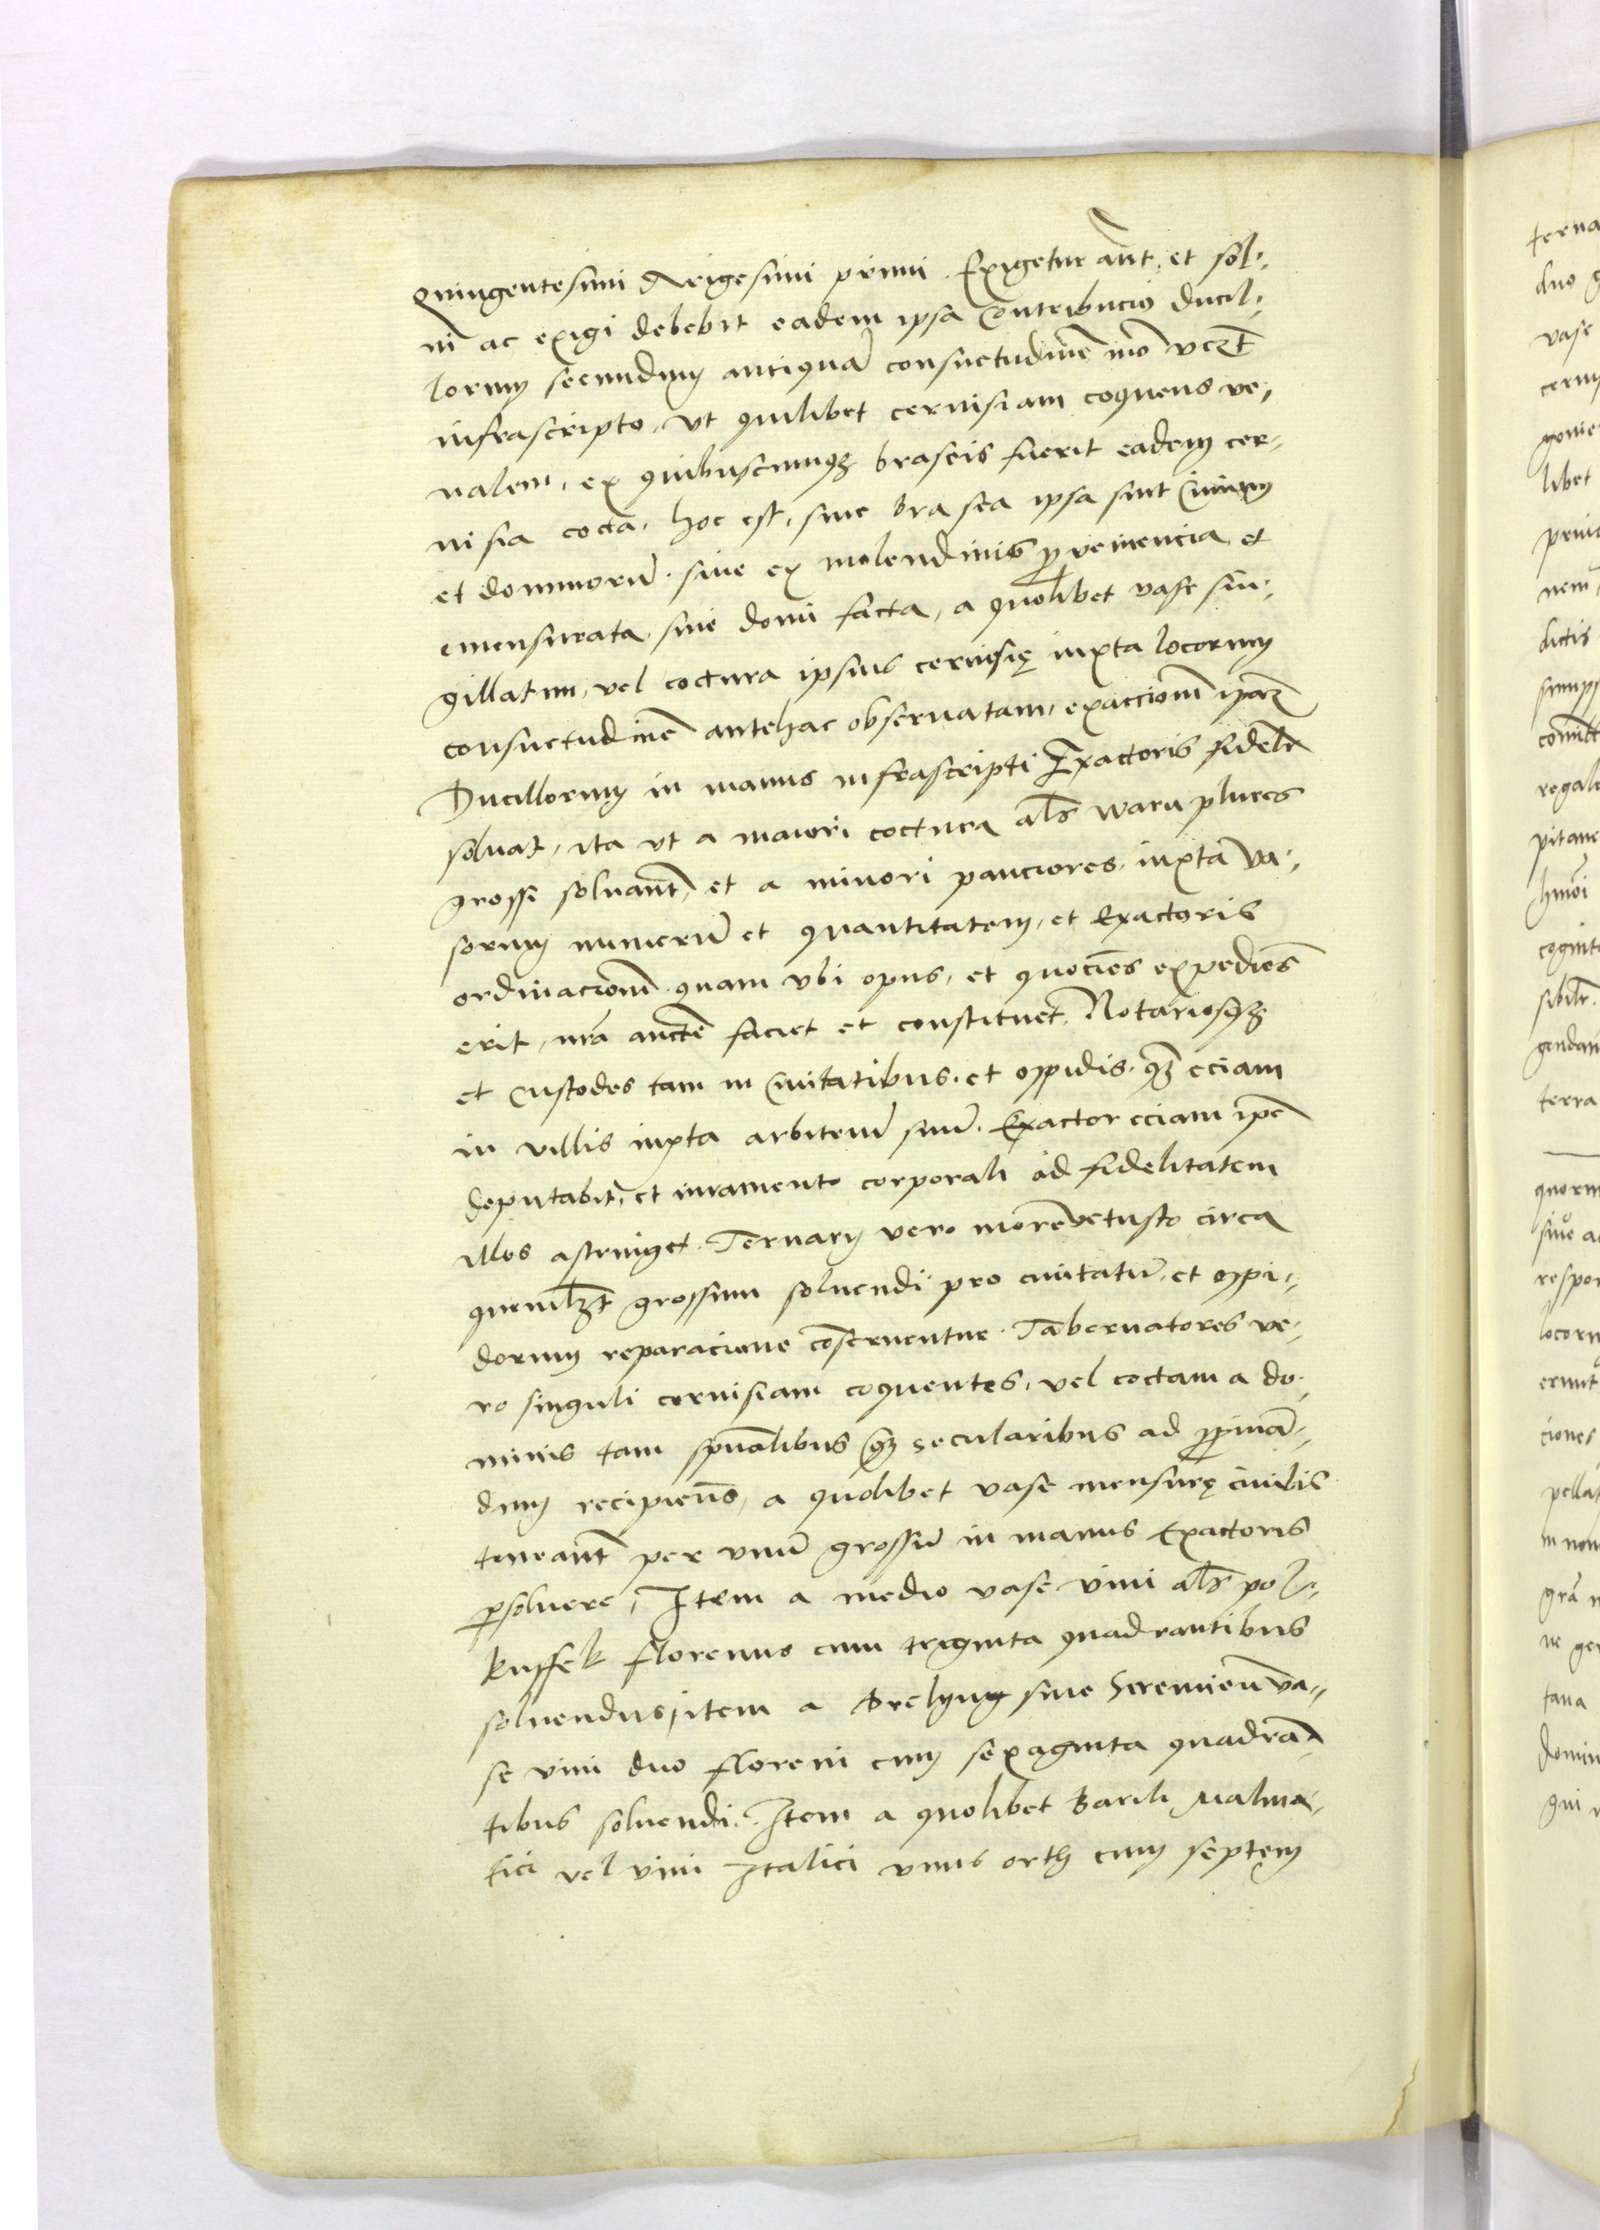 Quingentesimi Trigesimi primi. Exigetur aut̄ et sol-
ui ac exigi debebit eadem ipsa Contribucio Ducil-
lorum secundum antiquā consuetudinē mō
infrascripto, vt quilibet ceruisiam coquens ve-
nalem, ex quibuscumqȝ braseis fuerit eadem cer-
uisia cocta, hoc est, siue brasea ipsa sint Ciuium
et dominorū. siue ex molendinis ꝓueniencia et
emensurata, siue domi facta, a quolibet vase sin-
gillatim, vel coctura ipsius ceruisię iuxta locorum
consuetudinē antehac obseruatam, exaccionē ipāꝝ
Ducillorum in manus infrascripti Exactoris fidelr̄
soluat, ita vt a maiori coctura al̄s waru plures
grossi soluant̄, et a minori pauciores, iuxta va-
sorum numerū et quantitatem, et Exactoris
ordinacionē quam vbi opus, et quociēs expediēs
erit, nr̄a auctē faciet et constituet. Notariosqȝ
et Custodes tam in Ciuitatibus, et oppidis, qȝ eciam
in villis iuxta arbitriū suū. Exactor eciam ipē
deputabit, et iuramento corporali ad fidelitatem
illos astringet. Ternarij vero more vetusto circa
quemlȝt grossum soluendi pro ciuitatū, et oppi-
dorum reparacione cōseruentur. Tabernatores ve-
ro singuli ceruisiam coquentes, vel coctam a do-
minis tam spūalibus qȝ secularibus ad ꝓpinā-
dum recipiens, a quolibet vase mensurę ciuilis
teneant̄ per vnū grossū in manus Exactoris
ꝑsoluere, Item a medio vase vini al̄s pol-
kuffek florenus cum triginta quadrantibus
soluendus, item a Drelyng siue Sremien̄ va-
se vini duo floreni cum sexaginta quadrā-
tibus soluendi. Item a quolibet Barili Malma-
tici vel vini Italici vnus orth cum septem